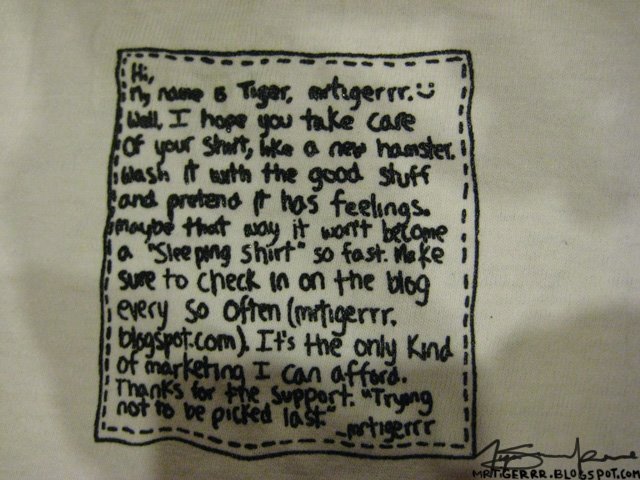 Hi,
my name is Tiger, mrtigerrr. :)
Well, I hope you take care
of your shirt, like a new hamster.
Wash it with the good stuff
and pretend it has feelings.
maybe that way it won't become
a "Sleeping shirt" so fast. Make
sure to check in on the blog
every so often (mrtigerrr.
blogspot.com). It's the only kind
of marketing I can afford.
Thanks for the support. "Trying
not to be picked last" -mrtigerrr
MRTIGERRR.BLOGSPOT.COM